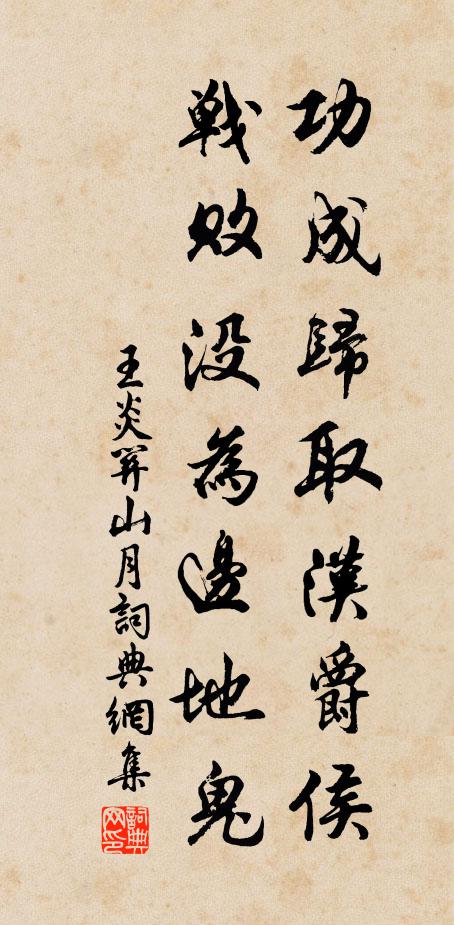 功成歸取漢爵侯
戰敗没為邊地鬼
王炎關山月詞典網集
詞典
网印